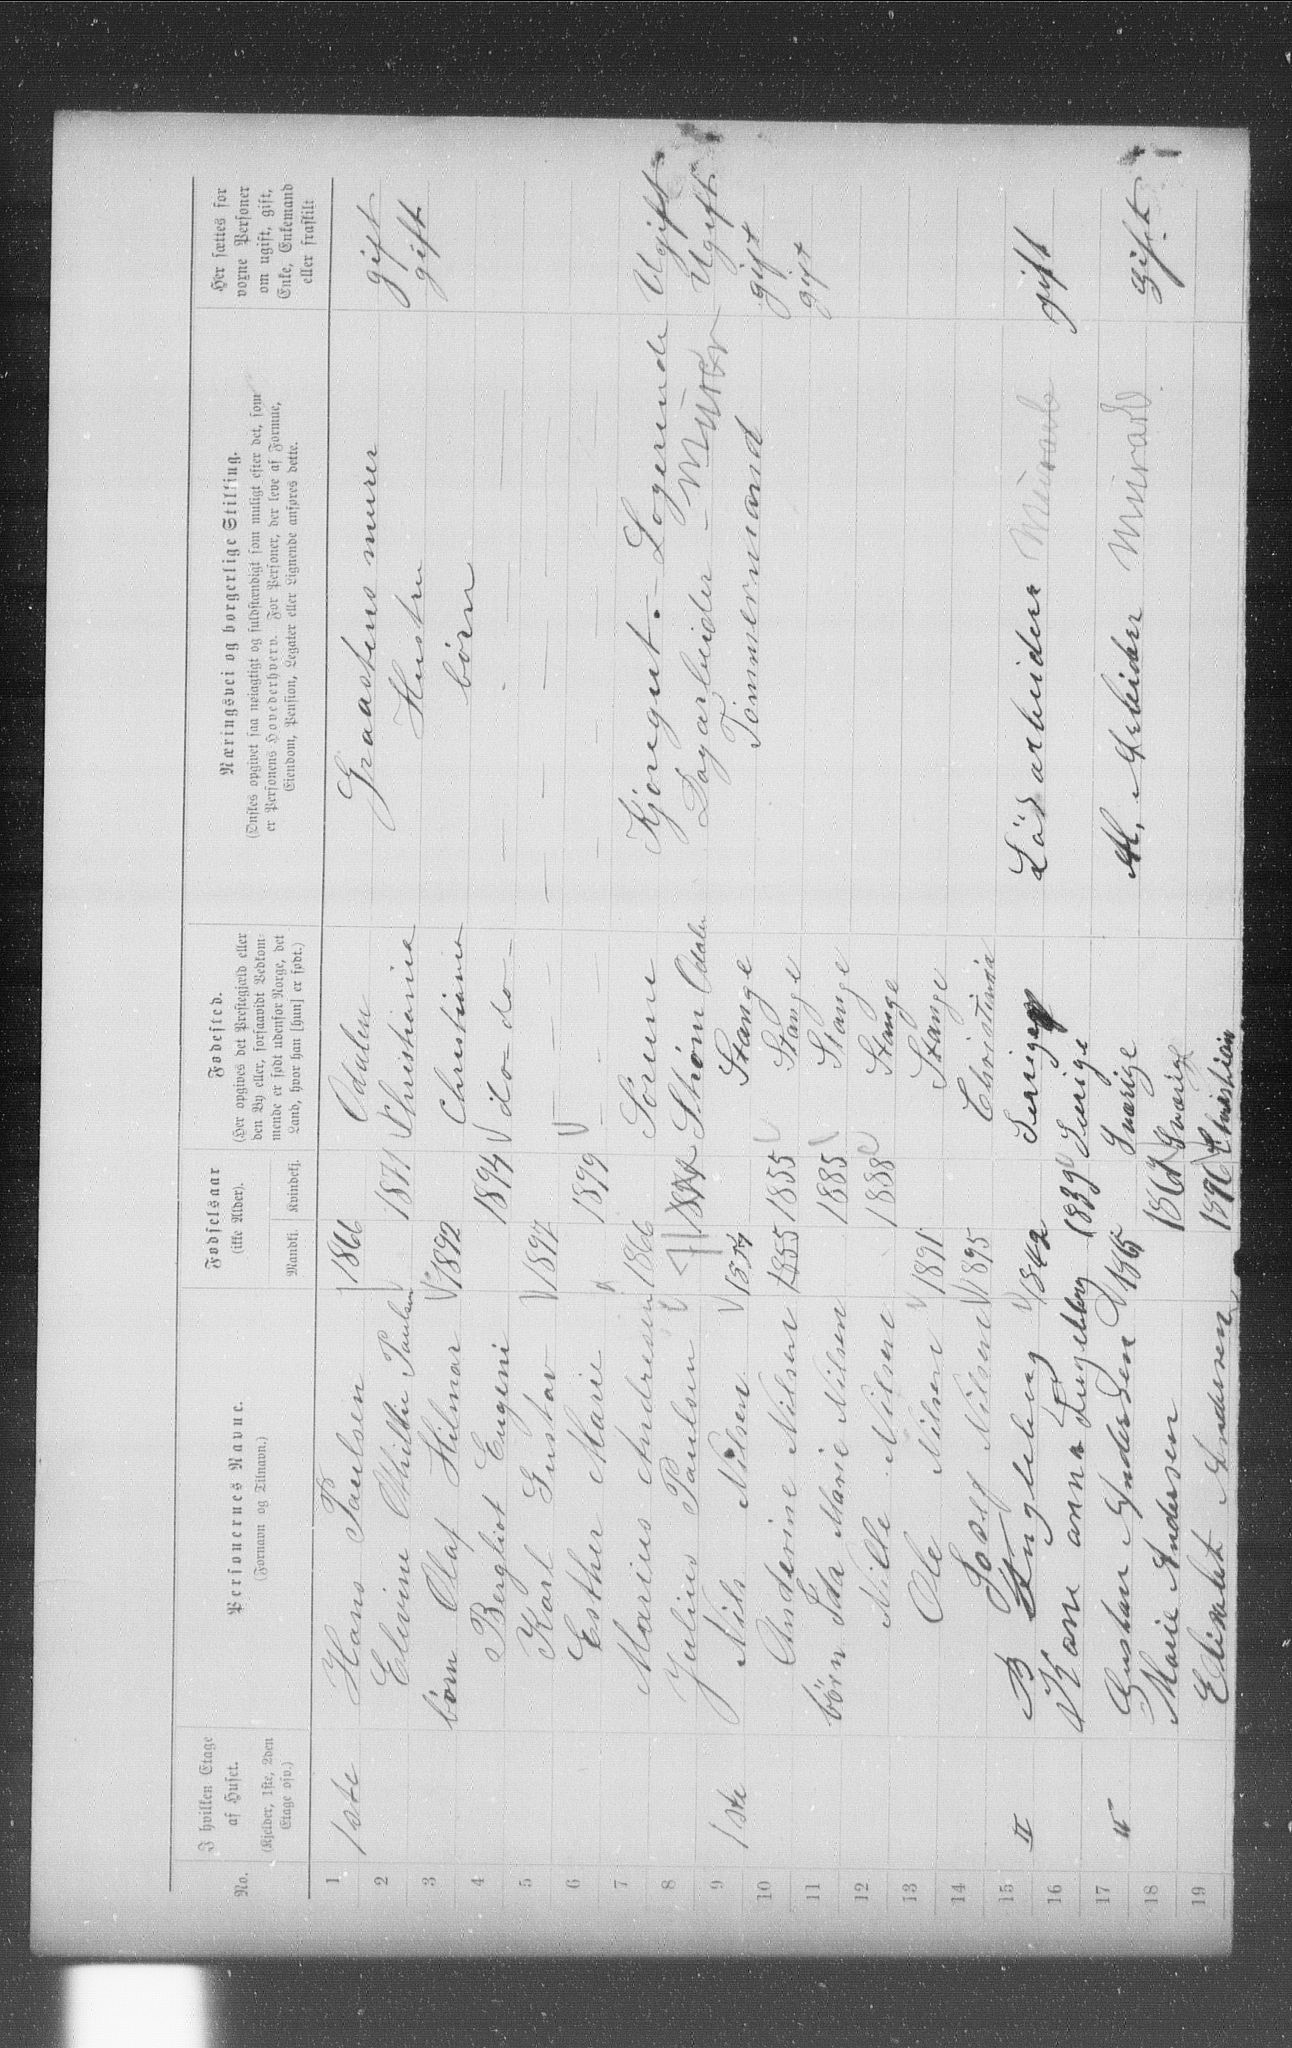 No.
I hvilken Etage
af Huset.
(Kjelder, 1ste, 2den
Etage osv.)
Personernes Navne.
(Fornavn og Tilnavn.)
Fødselsaar
(ikke Alder).
Mandkj. Kvindekj.
Fødested.
(Her opgives det Præstegjæld eller
den By eller, forsaavidt Vedkom-
mende er født udenfor Norge, det
Land, hvor han [hun] er født.)
Næringsvei og borgerlige Stilling.
(Ønskes opgivet saa nøiagtigt og fuldstændigt som muligt efter det, som
er Personens Hovederhverv. For Personer, der leve af Formue,
Eiendom, Pension, Legater eller Lignende anføres dette.
Her sættes for
voxne Personer
om ugift, gift,
Enke, Enkemand
eller fraskilt
1 1ste Hans Paulsen 1866 Odalen Graastens murer gift
2 Elvine Paulsen 1871 Christiania Hustru gift
3 børn Olaf Hilmar 1892 Christiania børn
4 Bergliot Eugeni 1894 do do
5 Karl Gustav 1897
6 Esther Marie 1899
7 Marius Andresen 1866 Kjøregut. Logerende Ugift
8 Julius Paulsen Strøm Odalen Dagarbeider Murer Ugift
9 1ste Nils Nilsen Stange Tømmermand gift
10 Anderine Nilsen 1855 1855 Stange gift
11 børn Ida Marie Nilsen 1885 Stange
12 Nille Nilsen 1888 Stange
13 Ole Nilsen 1891 Stange
14 Josef Nilsen 1895 Christiania
15 II B Engeberg 1842 arbeider Murarb
16 Kone anna 1839 gift
17 Gustav Andersen 1865 Sværige M. Arbeider Murarb gift
18 Marie Andersen Sværige
19 Andersen